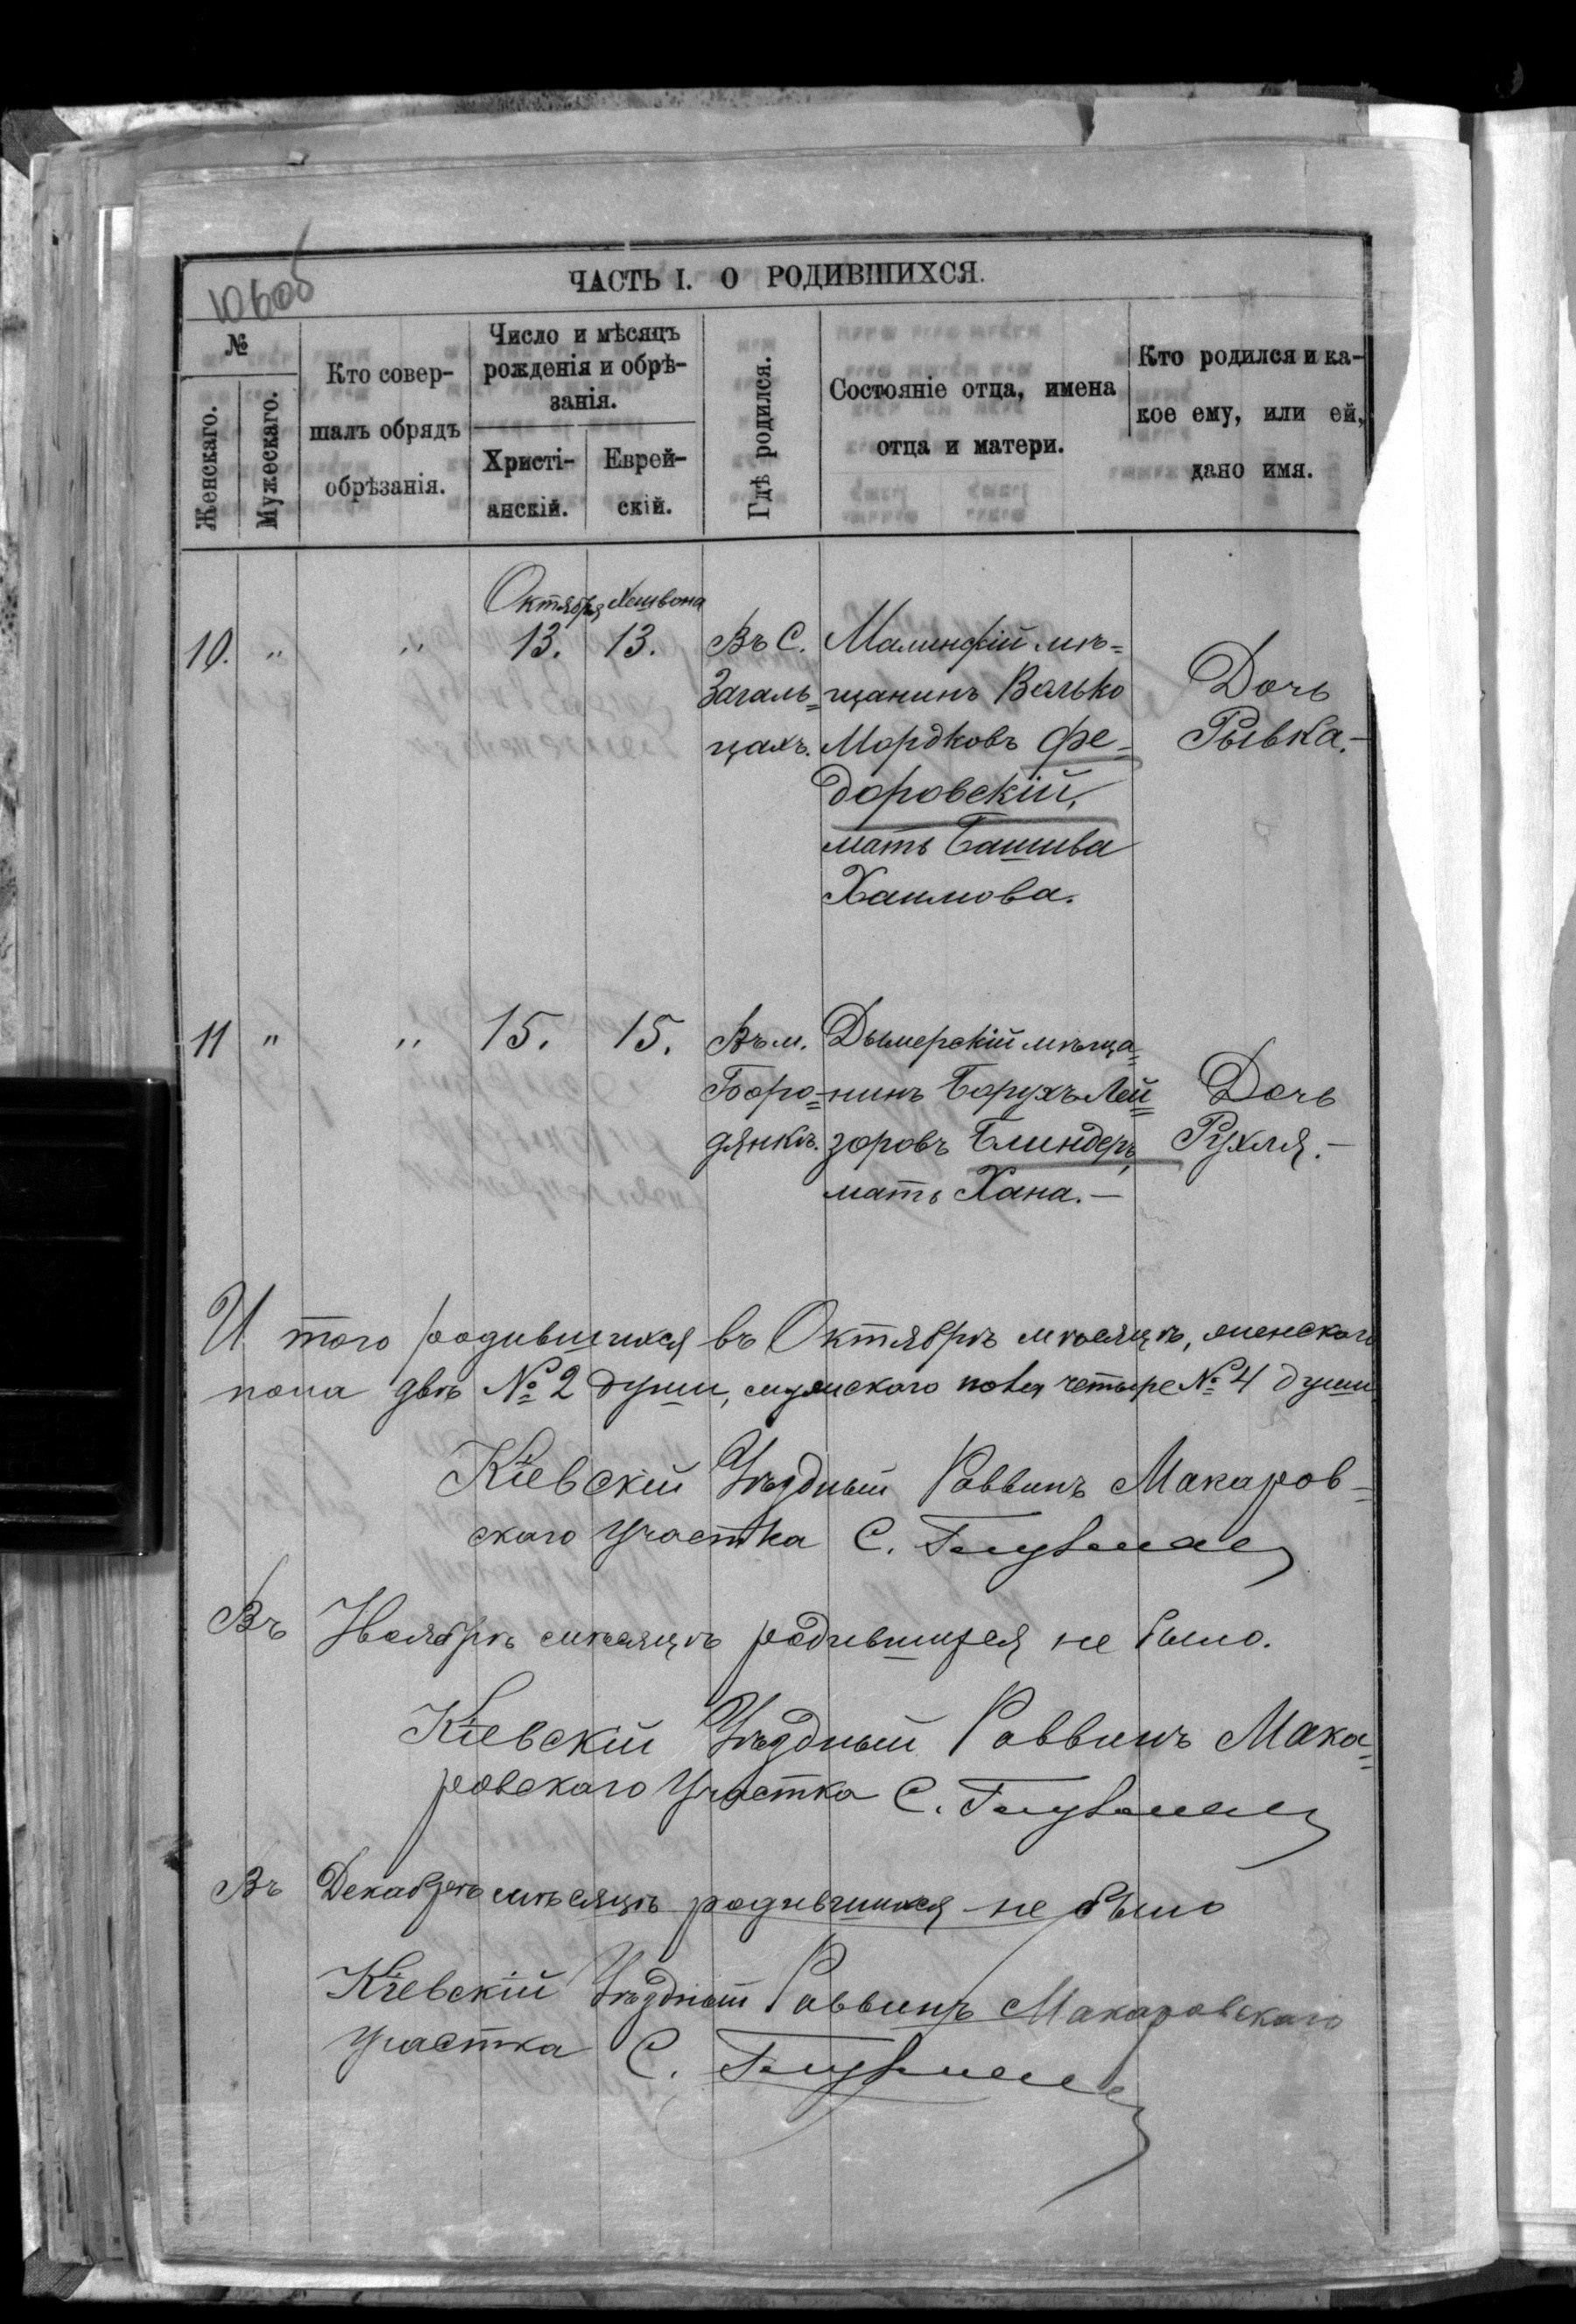 106об
ЧАСТЬ I. О РОДИВШИХСЯ.
№
Женскаго.
Мужескаго.
Кто совер-
шалъ обрядъ
обрѣзанія.
Число и мѣсяцъ
рожденія и обрѣ-
занія.
Христі-
анскій.
Еврей-
скій.
Гдѣ родился.
Состояніе отца, имена
отца и матери.
Кто родился и ка-
кое ему, или ей,
дано имя.
Октября Хешвона
10. " " 13. 13.
Въ С.
Загаль=
цахъ.
мѣ=
щанинъ Волько
Мордковъ Фе=
доровскій,
мать Башива
Хаимова.
Дочь
Рывка.-
11 " " 15. 15.
Въ м.
Боро=
дянкѣ.
Дымерскій мѣща=
нинъ Борухъ Лей=
зоровъ Блиндеръ,
мать Хана.-
Дочь
Рухля.-
И того родившихся въ Октябрѣ мѣсяцѣ, женскаго
пола двѣ № 2 души, мужскаго пола четыре № 4 души
Кіевскій Уѣздный Раввинъ Макаров=
скаго Участка С.
Въ Ноябрѣ мѣсяцѣ родившихся не было.
Кіевскій Уѣздный Раввинъ Мака=
ровскаго Участка С.
Въ Декабрѣ мѣсяцѣ родившихся не было
Кіевскій Уѣздный Раввинъ Макаровскаго
Участка С.